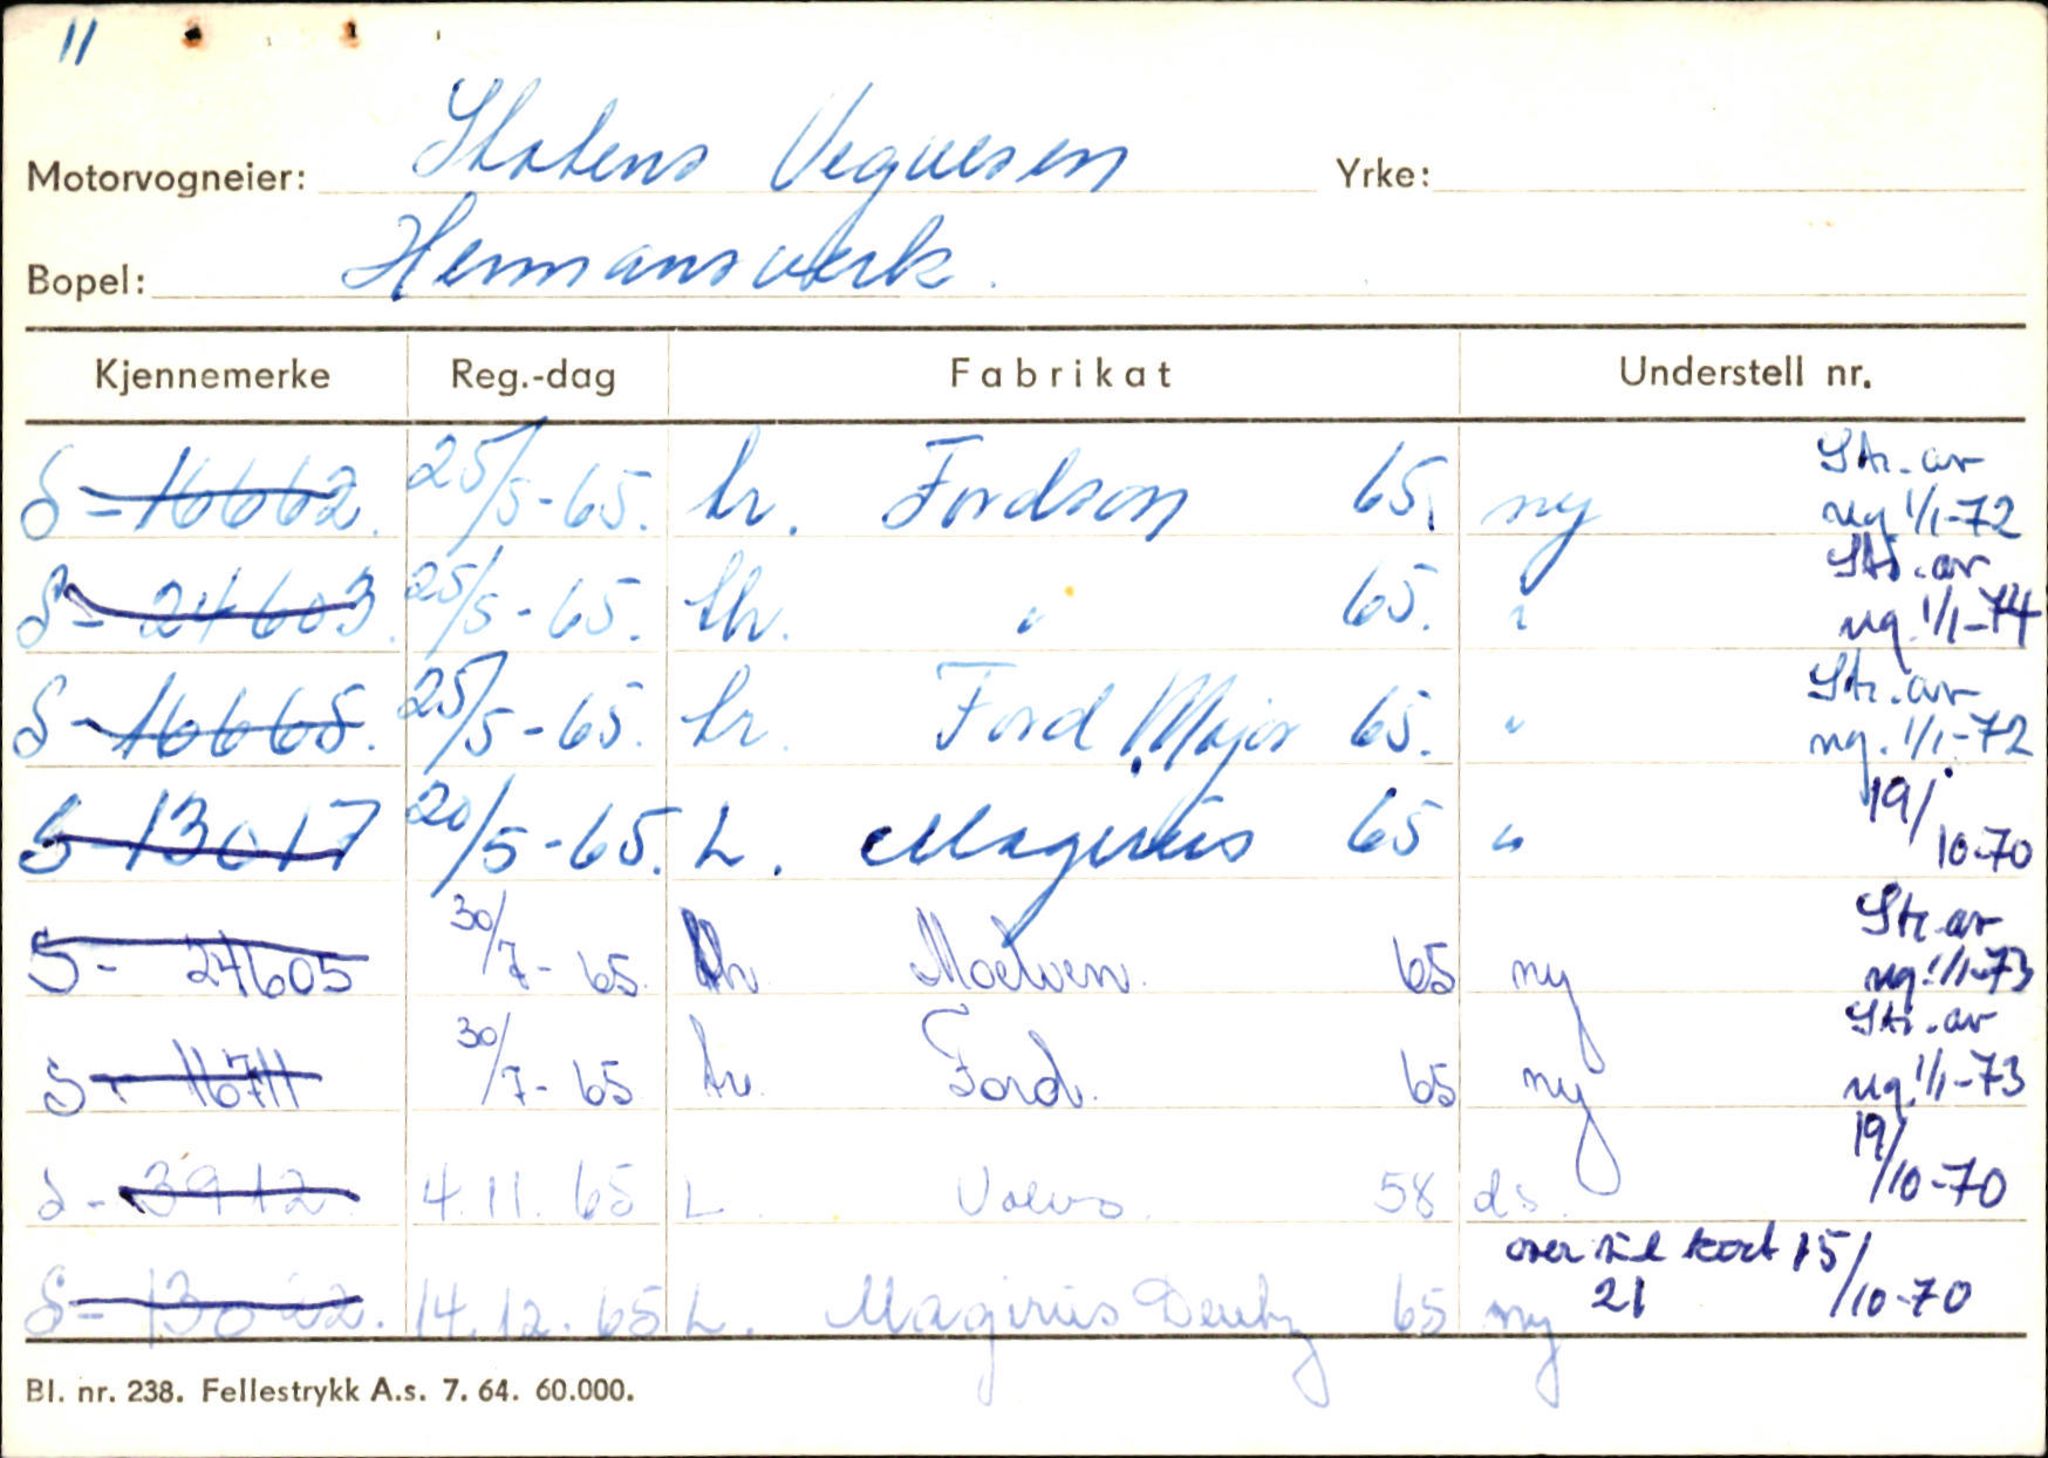 11
Motorvogneier: Statens Vegvesen Yrke:
Bopel: Hermansverk.
Kjennemerke Reg.-dag Fabrikat Understell nr.
S-16662. 25/5-65. tr. Fordson 65. ny Str. av
reg. 1/1-72
S-24603. 25/5-65. thr. " 65. " Str. av
reg. 1/1-74
S-16665. 25/5-65. tr. Ford Major 65. " Str. av
reg. 1/1-72
S-13017 20/5-65. L. Magirus 65 " 19/10-70
S-24605 30/7-65. thr. Moelven. 65 ny Str. av
reg. 1/1-73
S-16711 30/7-65 tr. Ford. 65 ny Str. av
reg. 1/1-73
S-3912. 4.11.65 L. Volvo. 58 ds. 19/10-70
over til kort 15/10-70
S-13022. 14.12.65 L. Magirus Deutz 65 ny 21
Bl. nr. 238. Fellestrykk A.s. 7. 64. 60.000.